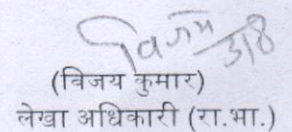 विजय
3/8
(विजय कुमार)
लेखा अधिकारी (रा.भा.)